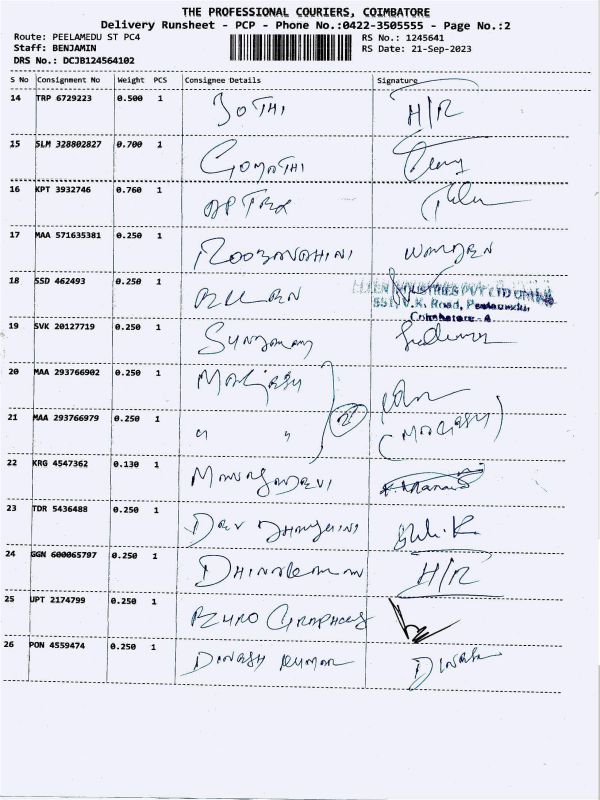 THE PROFESSIONAL COURIERS, COIMBATORE
Delivery Runsheet - PCP - Phone No.:0422-3505555 - Page No.:2
Route: PEELAMEDU ST PC4
RS No.: 1245641
Staff: BENJAMIN
RS Date: 21-Sep-2023
DRS No.: DCJB124564102
S No Consignment No Weight PCS Consignee Details Signature
14 TRP 6729223 0.500 1 JOTHI H/R
15 SLM 328802827 0.700 1 GOMATHI
16 KPT 3932746 0.760 1
17 MAA 571635381 0.250 1 ROOBAVAHINI WARDEN
18 SSD 462493 0.250 1
551, V.K. Road, Peelamedu
Coimbatore - 4
19 SVK 20127719 0.250 1
20 MAA 293766902 0.250 1 2
21 MAA 293766979 0.250 1 " "
22 KRG 4547362 0.130 1
23 TDR 5436488 0.250 1 DEV
24 GGN 600065797 0.250 1 H/R
25 UPT 2174799 0.250 1 EURO GRAPHOES
26 PON 4559474 0.250 1 DINESH KUMAR DINESH